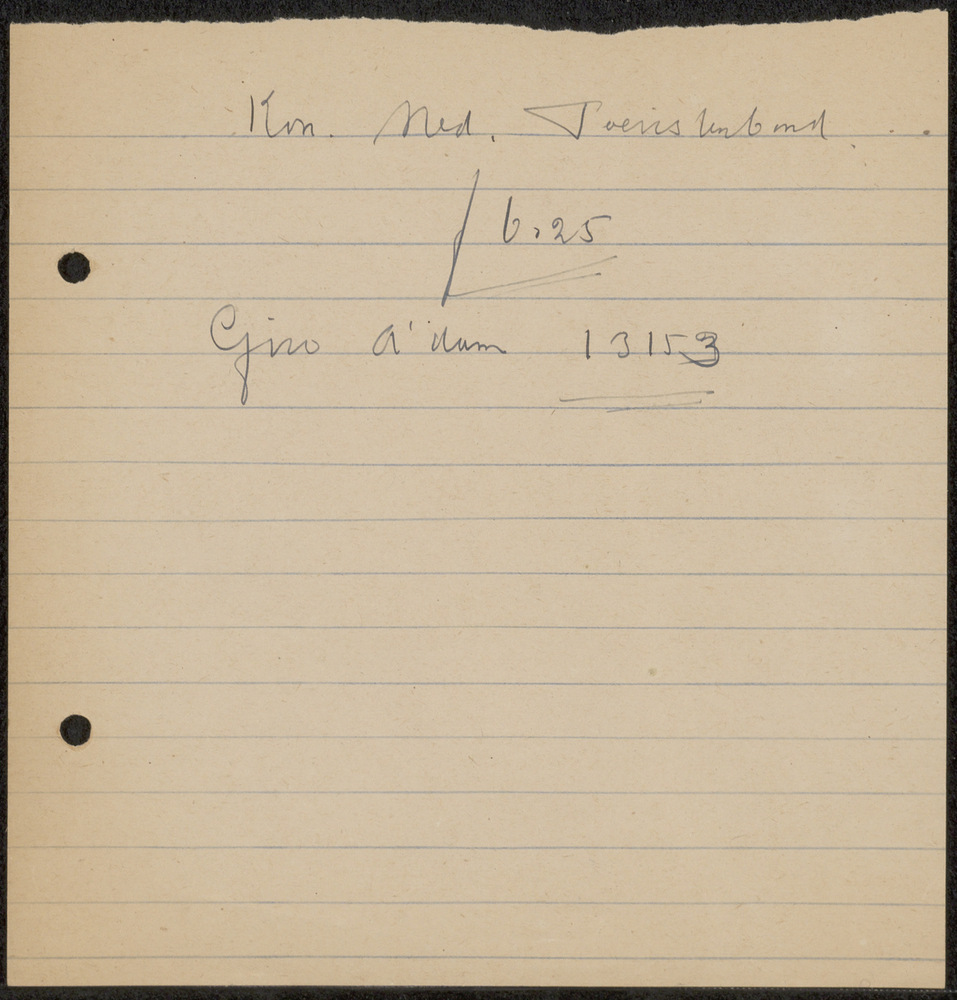 Kon. Ned. Toeristenbond.
f 6.25
Giro A'dam 13153